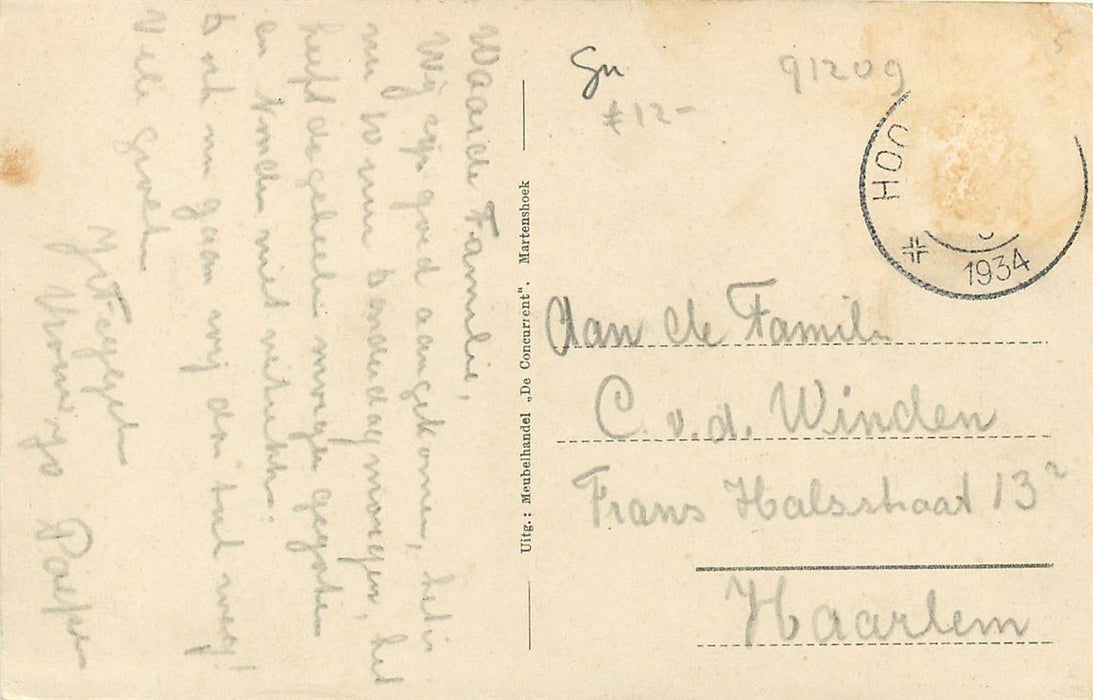 Waarde Familie,
Wij zijn goed aangekomen, het is
nu 10 uur Zonderdagmorgen, het
heeft de geheele morgen gegoten
en konden niet uitrukken.
Doch nu gaan wij dan toch weg!
Vele groeten
Uitg.: Meubelhandel „De Concurrent". Martenshoek
Gn
91209
5
#12-
HOO
1934
Aan de Famili
C. v.d. Winden
Frans Halsstraat 13²
Haarlem